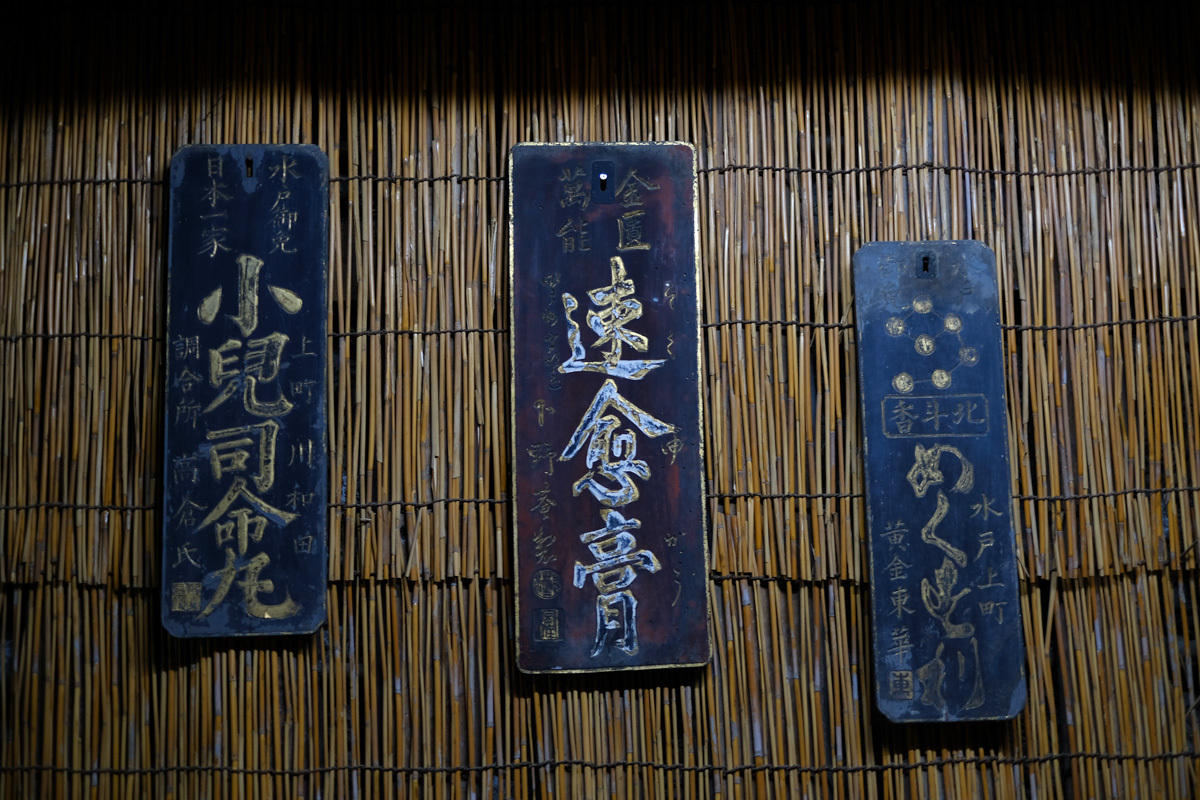 水戸御免
日本一家
上町 川和田
小兒司命丸
調合所 萬倉氏
金匱
萬能
そくゆかう
速愈膏
北斗香
水戸上町
めくすり
黄金東華